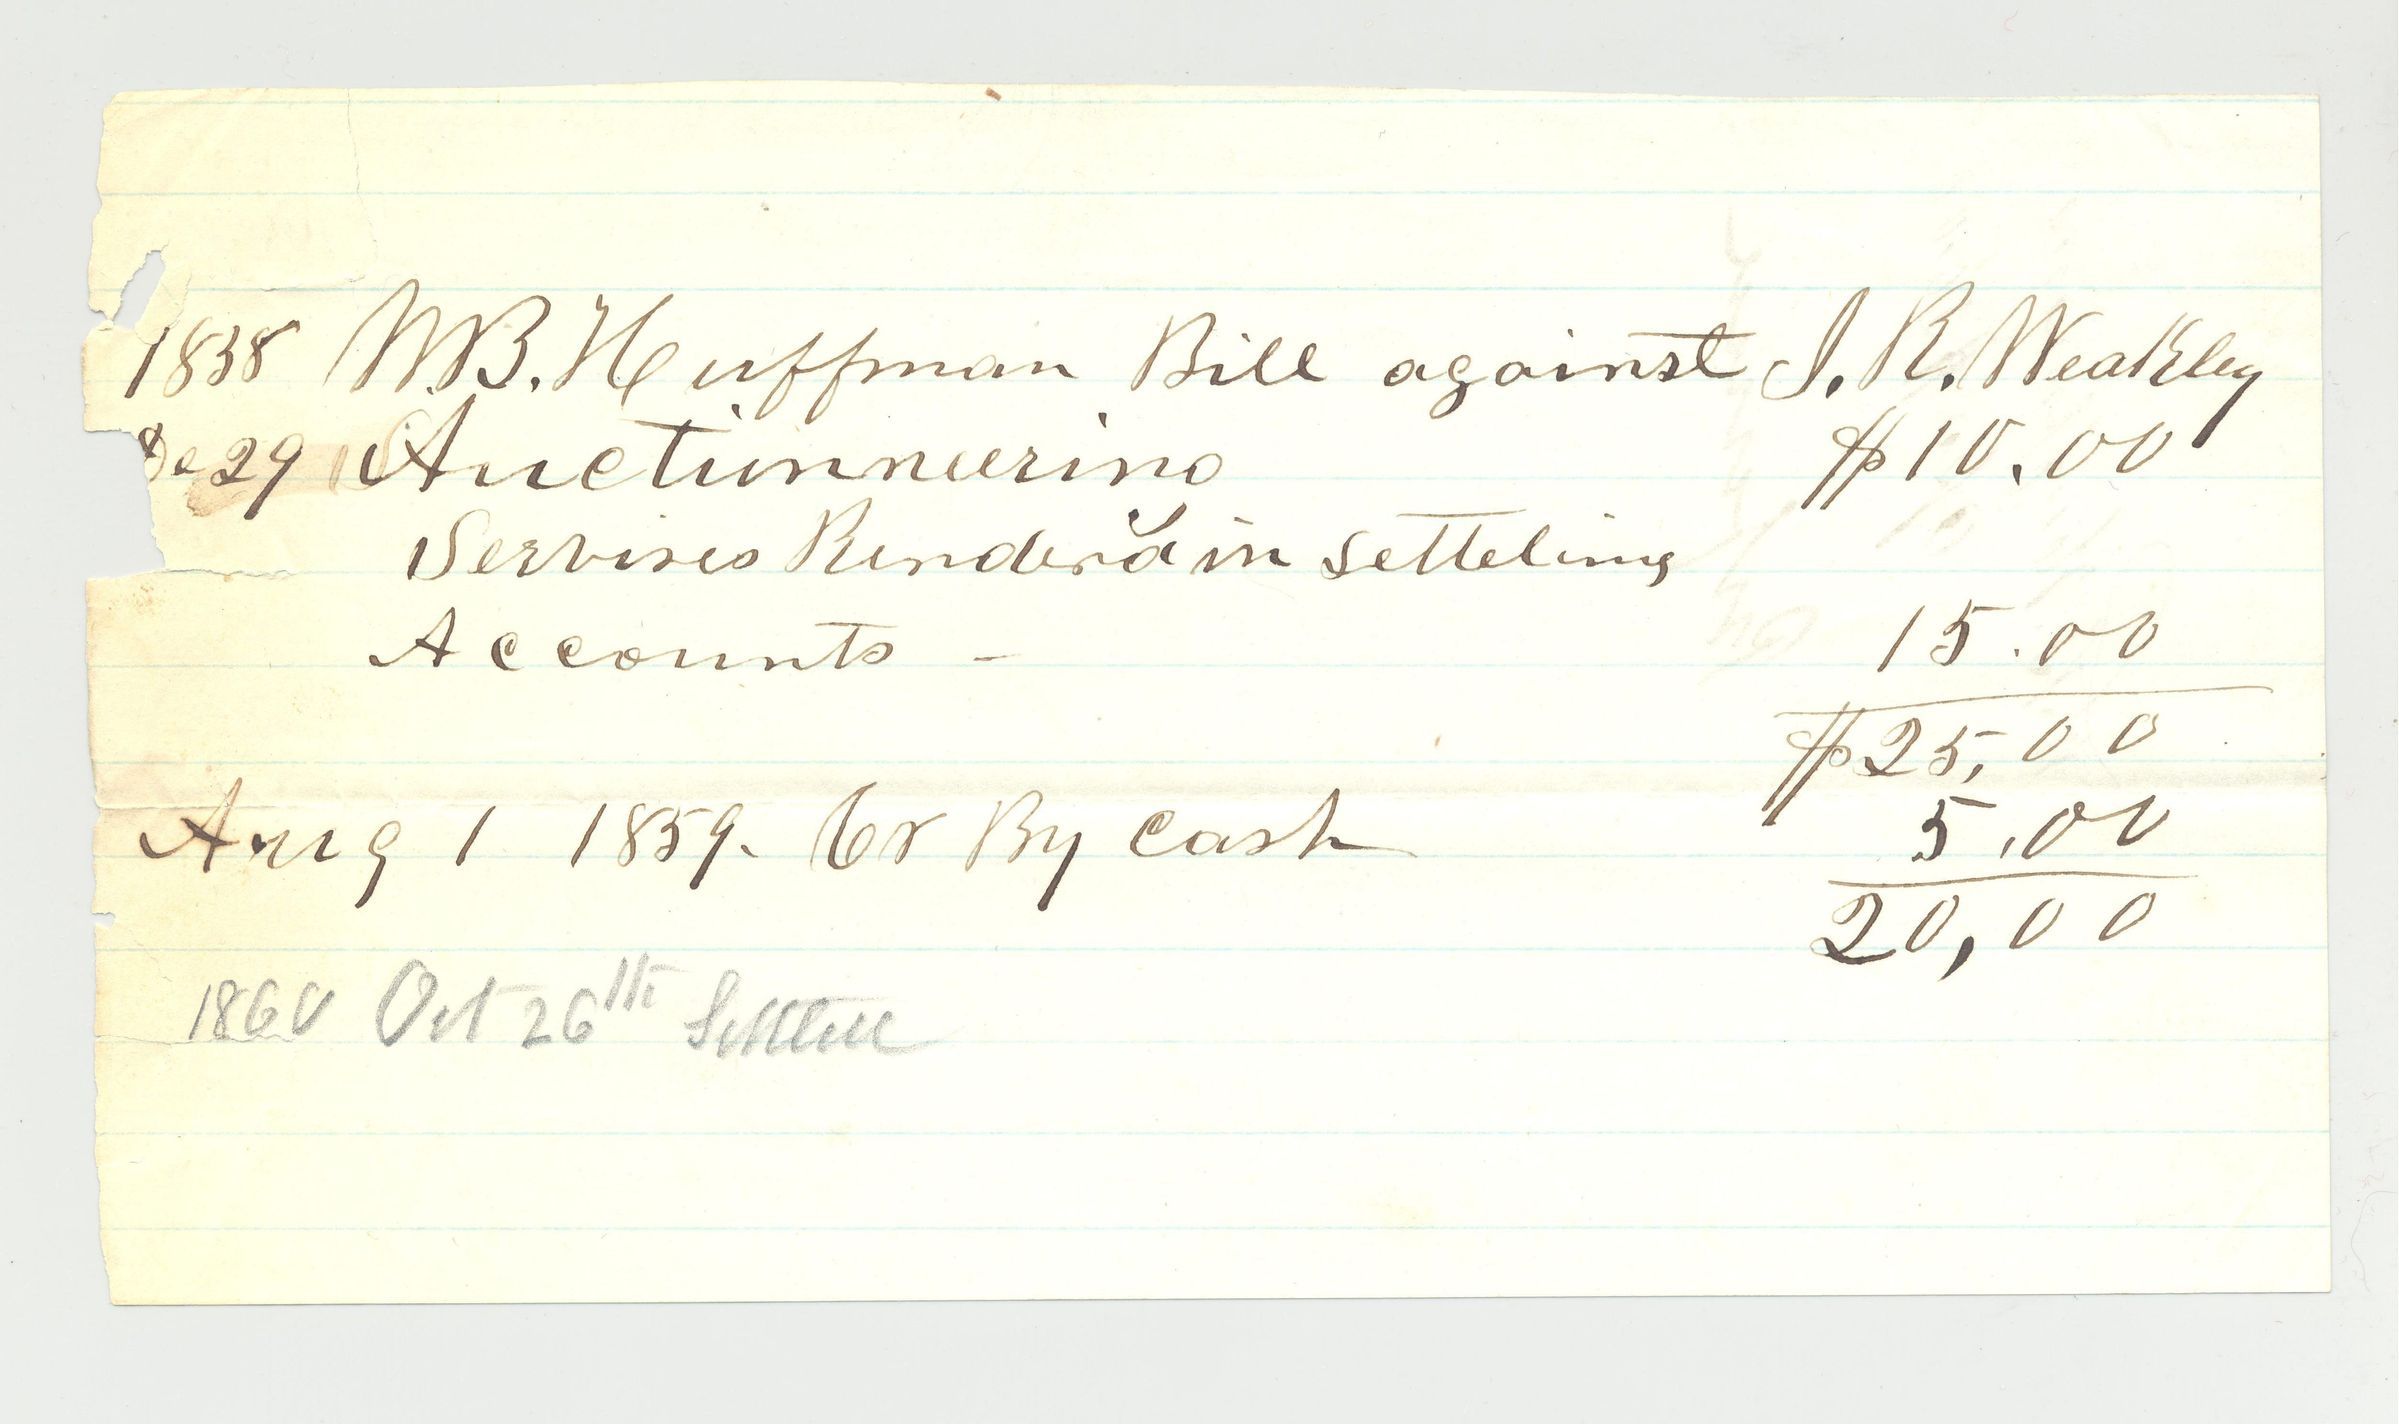 1858 W.B. Huffman Bill against J. R. Weakley
De 29 Auctionneering $10.00
Servises Renderd in setteling
Accounts - 15.00
$25,00
Aug 1 1859. Cr By Cash 5.00
20,00
1860 Oct 26th